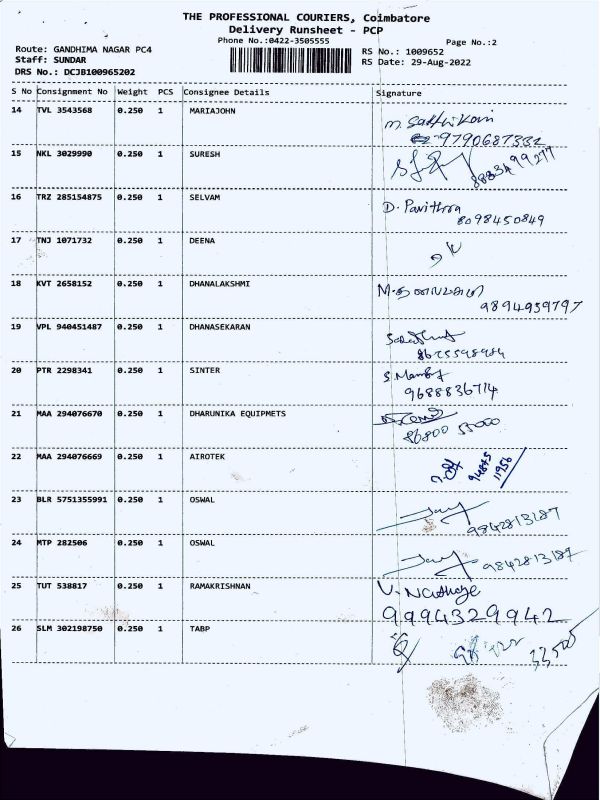 THE PROFESSIONAL COURIERS, Coimbatore
Delivery Runsheet - PCP
Phone No.:0422-3505555
Page No.:2
Route: GANDHIMA NAGAR PC4
RS No.: 1009652
Staff: SUNDAR
RS Date: 29-Aug-2022
DRS No.: DCJB100965202
S No Consignment No Weight PCS Consignee Details Signature
14 TVL 3543568 0.250 1 MARIAJOHN
9790687332
15 NKL 3029990 0.250 1 SURESH
8883499277
16 TRZ 285154875 0.250 1 SELVAM D. Pavithra
8098450849
17 TNJ 1071732 0.250 1 DEENA
18 KVT 2658152 0.250 1 DHANALAKSHMI
9894959797
19 VPL 940451487 0.250 1 DHANASEKARAN
20 PTR 2298341 0.250 1 SINTER
9688836714
21 MAA 294076670 0.250 1 DHARUNIKA EQUIPMETS
86800 55000
22 MAA 294076669 0.250 1 AIROTEK
94875
11956
23 BLR 5751355991 0.250 1 OSWAL
9842813187
24 MTP 282506 0.250 1 OSWAL
9842813187
25 TUT 538817 0.250 1 RAMAKRISHNAN
9994329942
26 SLM 302198750 0.250 1 TABP